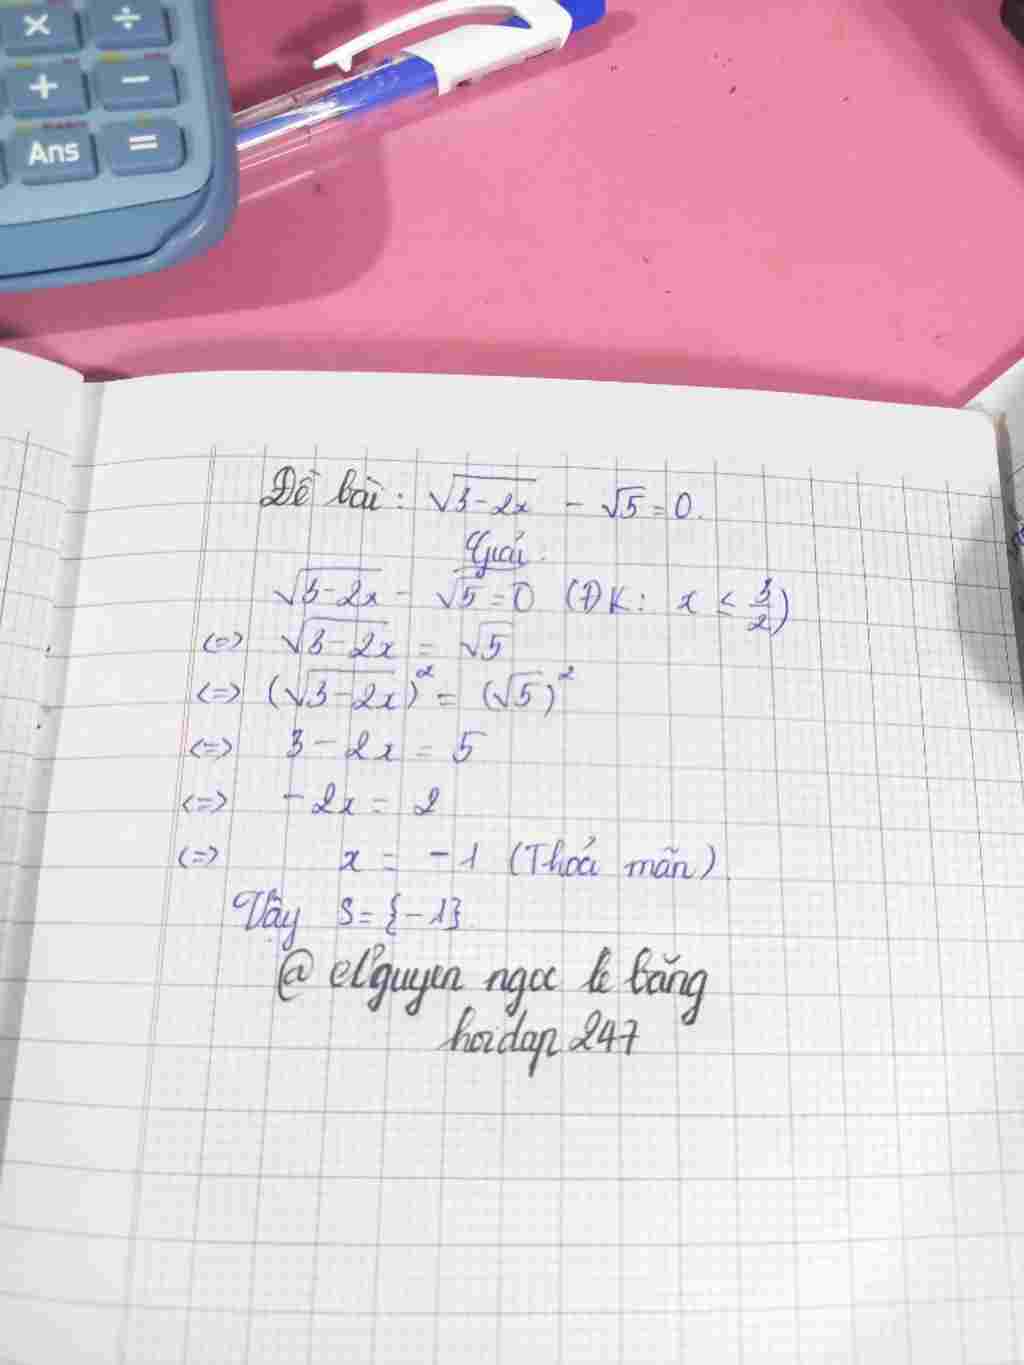 ×
÷
+
−
Ans
=
Đề bài: √(3-2x) - √5 = 0.
Giải.
√(3-2x) - √5 = 0 (ĐK: x ≤ 3/2)
<=> √(3-2x) = √5
<=> (√(3-2x))² = (√5)²
<=> 3-2x = 5
<=> -2x = 2
<=> x = -1 (Thoả mãn)
Vậy S = {-1}
@ Nguyen ngoc le băng
hoidap 247